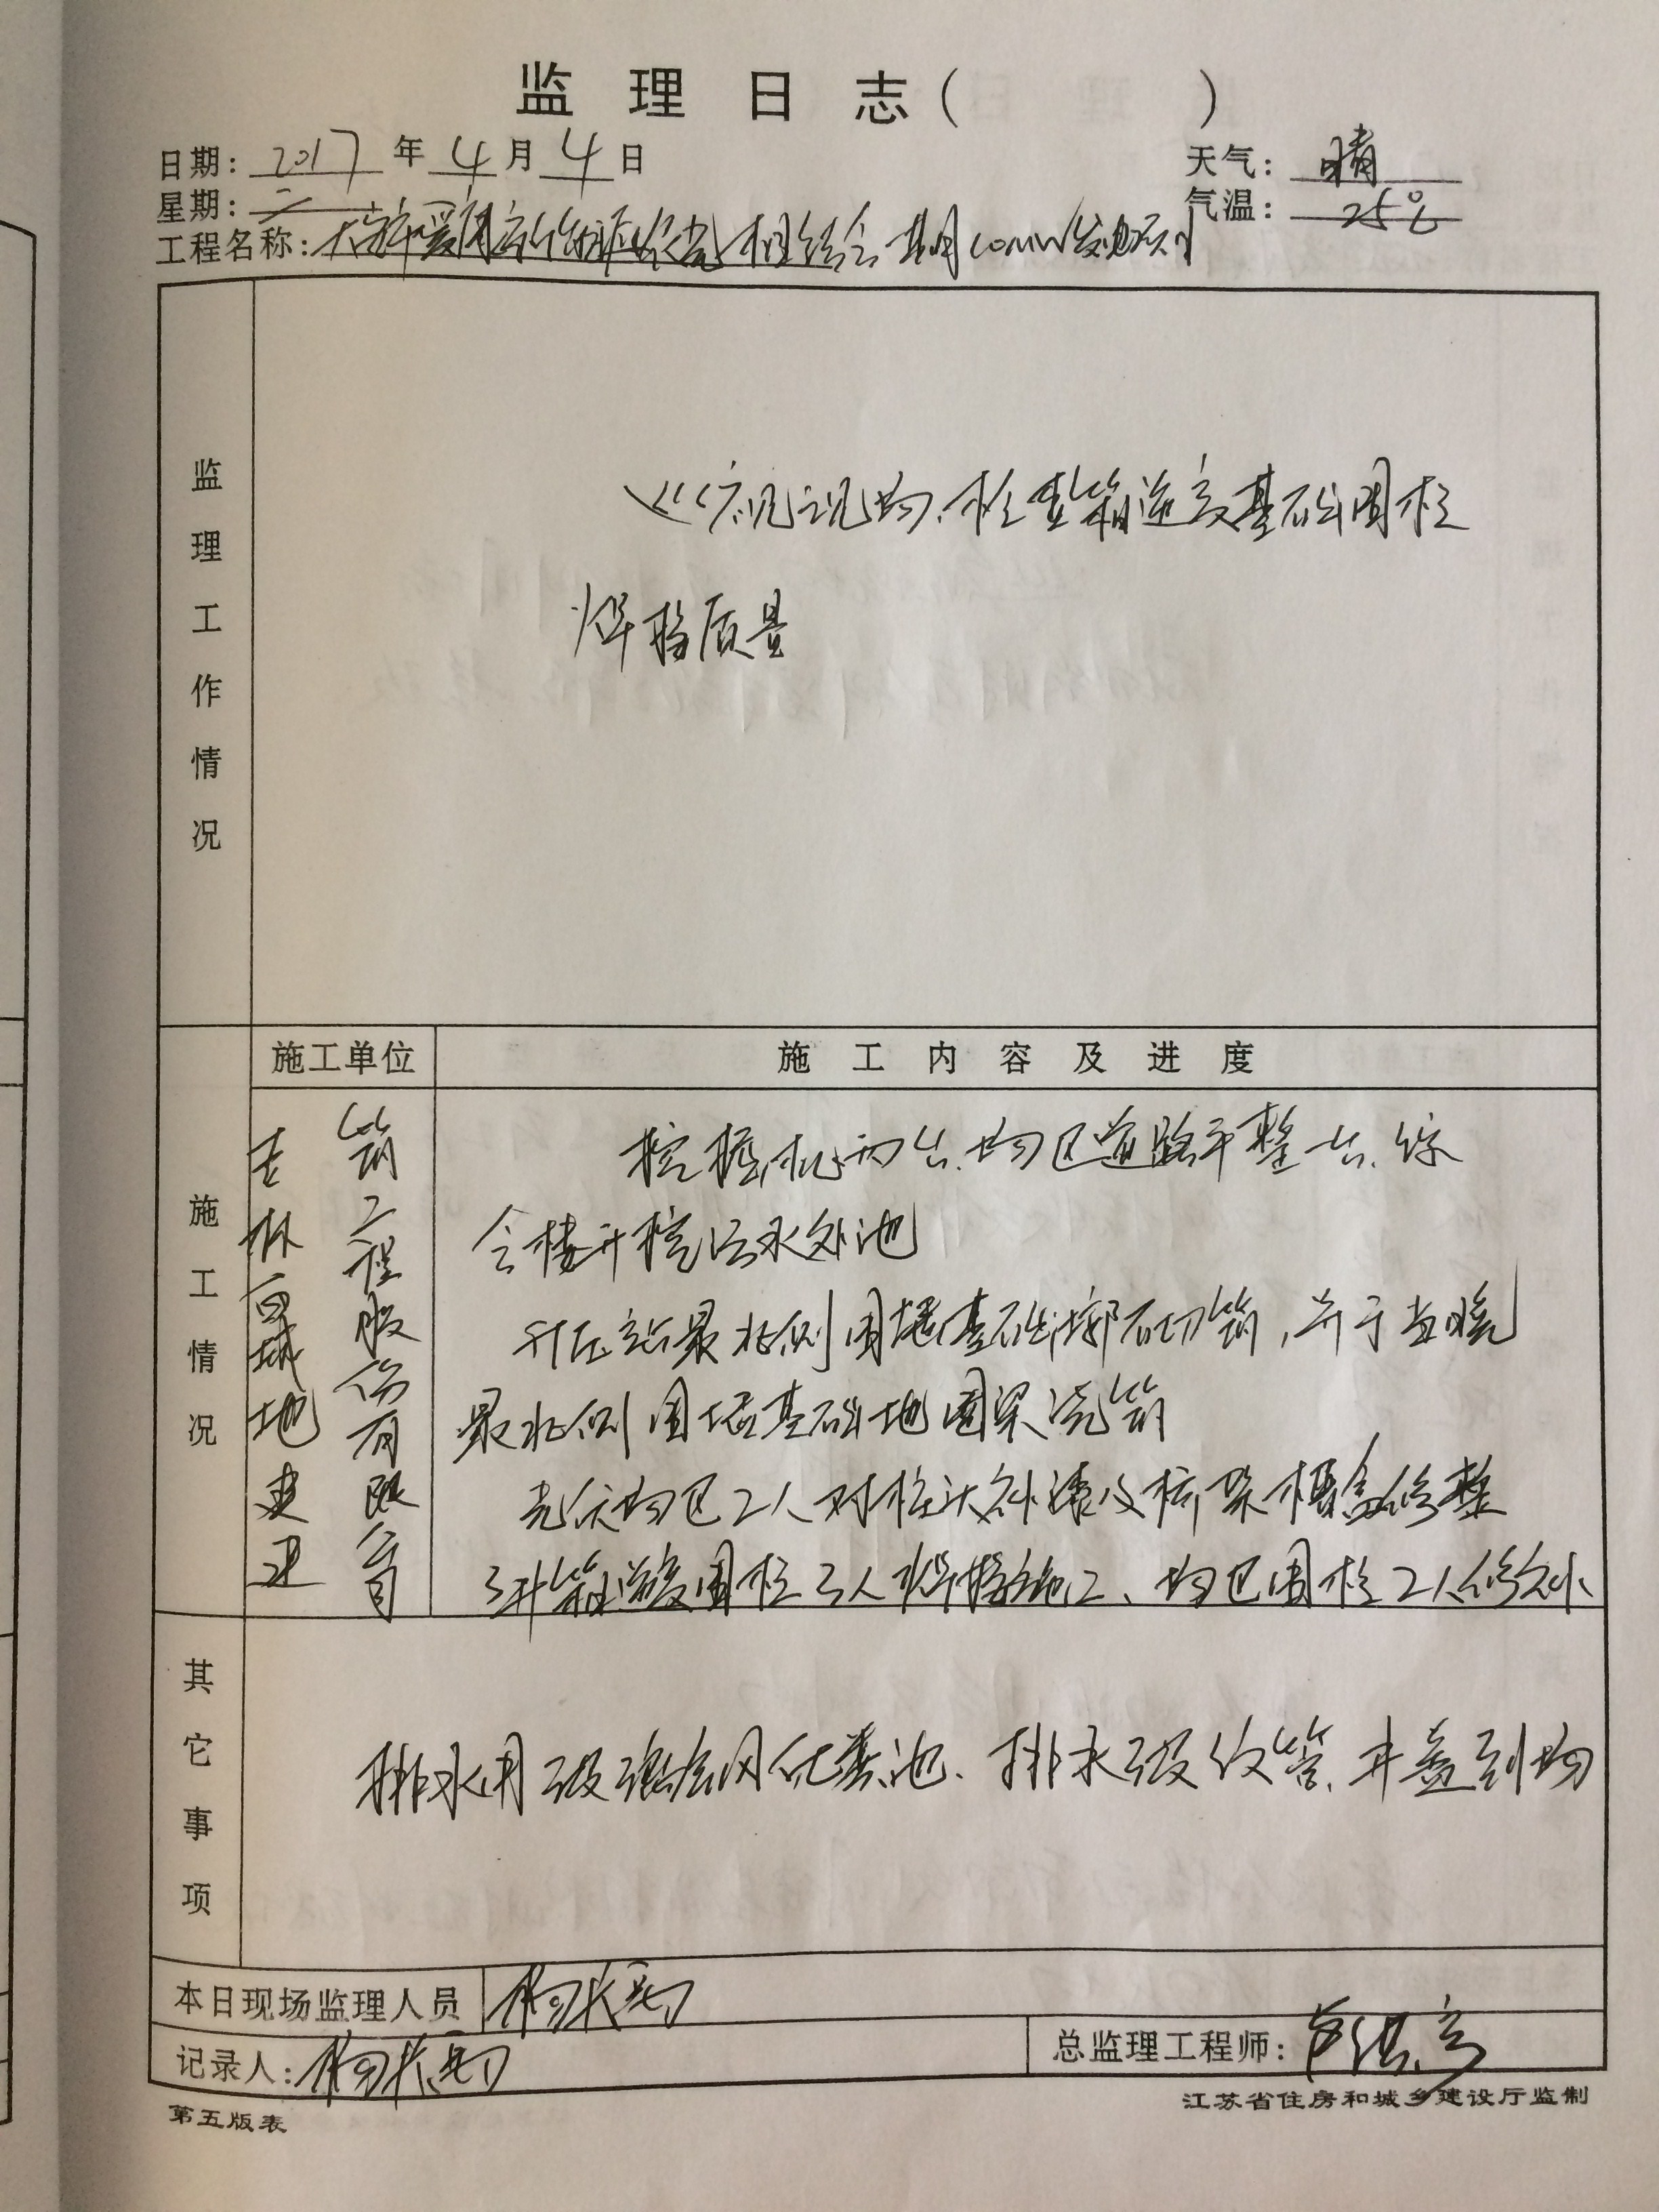 监理日志（ ）
日期：2017年4月4日 天气：晴
星期：二 气温：25℃
工程名称：相结合 期10MW发电项目
监理工作情况
巡视现场，检查箱逆变基础围栏
焊接质量
施工单位 施工内容及进度
施工情况
吉林百城地建
筑工程股份有限公司
挖掘机两台，场区道路平整一台，综
合楼开挖污水处池
升压站最北侧围墙基础 石切筑，并于当晚
最北侧围墙基础地圈梁浇筑
光伏场区2人对柱头补漆及桥架 修整
3#箱逆变围栏3人焊接施工、场区围栏2人修补
其它事项
排水用玻璃钢化粪池、排水波纹管、井盖到场
本日现场监理人员 杨
记录人：杨 总监理工程师：
第五版表 江苏省住房和城乡建设厅监制